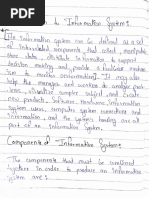 to Information Systems
The Information system can be defined as a set
of Interrelated components, that collect, manipulate
store data, distribute Information to support
decision making, and provide a feedback
ism to monitor information]. It may also
help the managers and workers to analyze prob
lems, visualize complex subject, and create
new products. Software Hardware Information
system users, computer system connections
and information, and the system's housing are all
part of an Information System.
Components of Information Systems
The components that must be combined
together in order to produce an Information
System are: